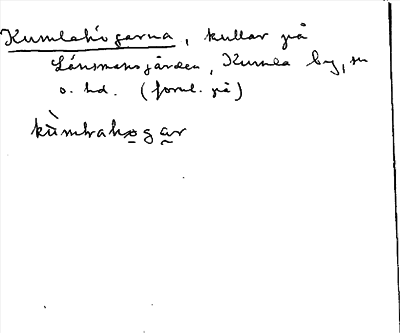 Kumlahögarna, kullar på
Länsmansgården, Kumla by, sn
o. hd. (forul. på)
kùmbrahogar